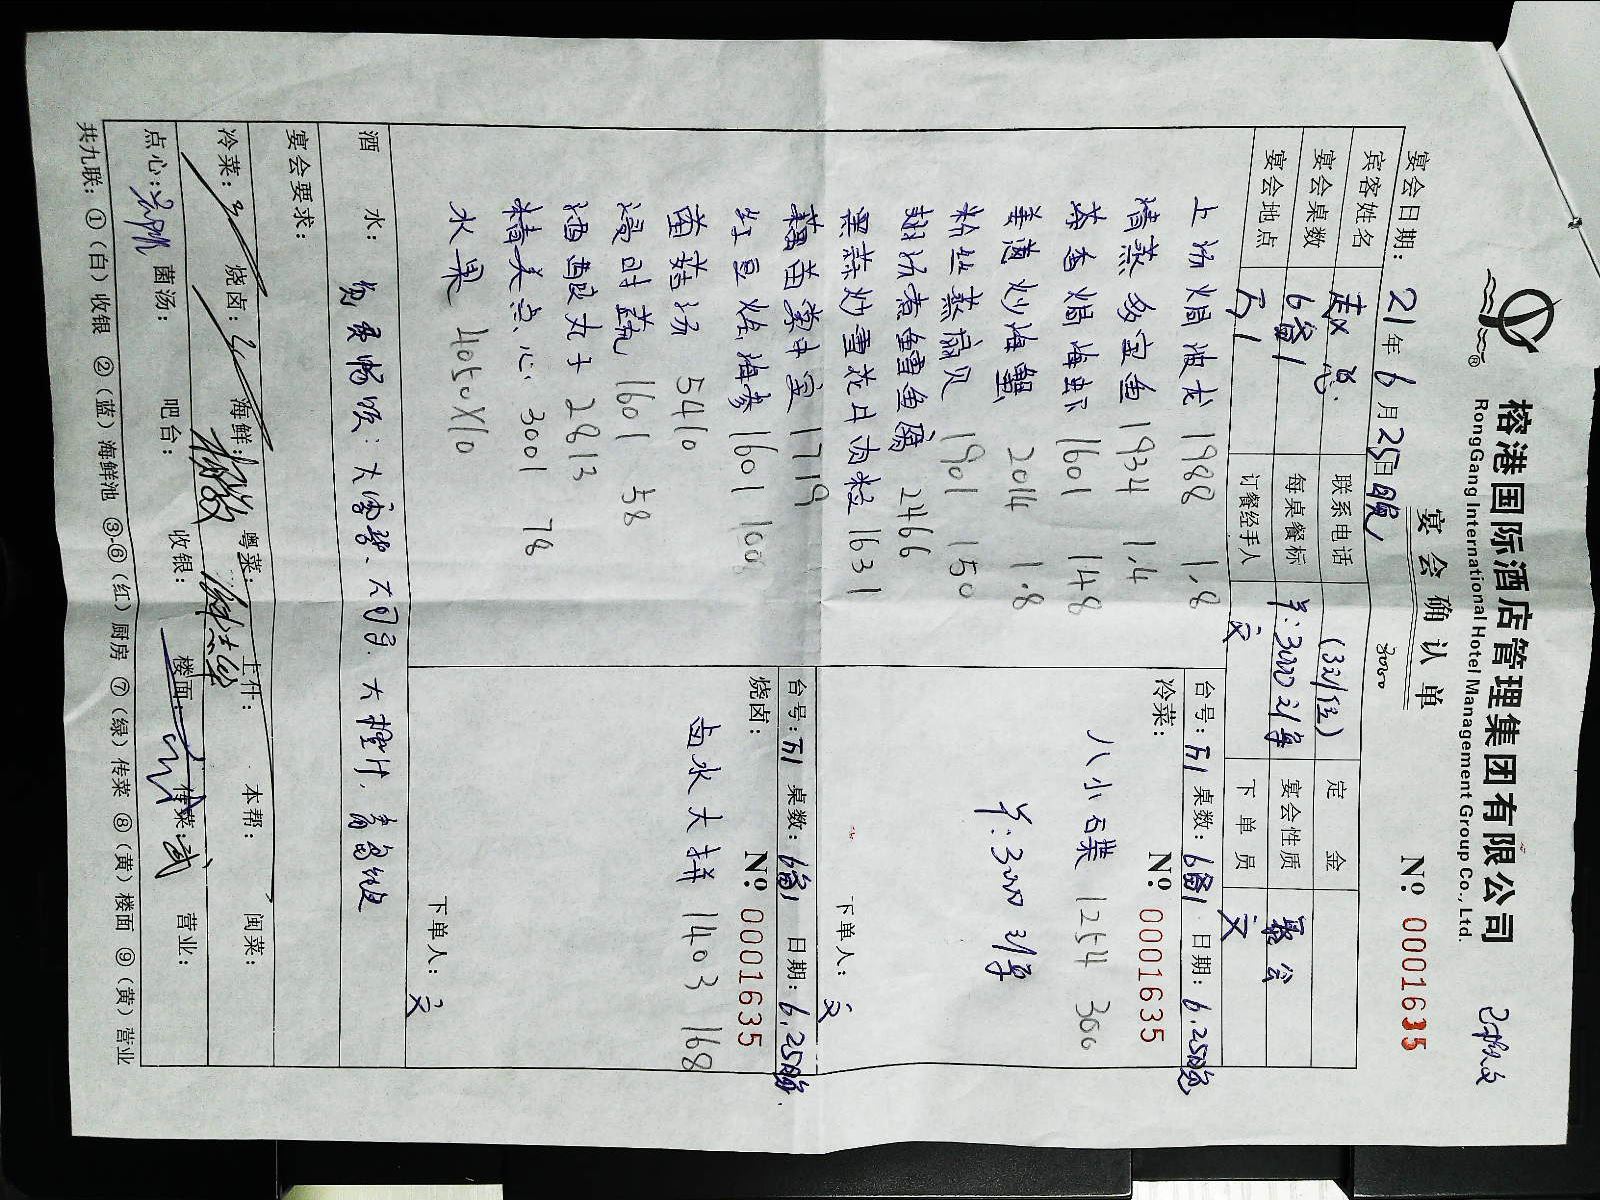 榕港国际酒店管理集团有限公司
RongGang International Hotel Management Group Co., Ltd.
宴会确认单
№ 0001635
3000
宴会日期: 21年6月25日晚
宾客姓名 赵总 联系电话 (33位) 定金
宴会桌数 6备1 每桌餐标 单:3000 宴会性质
宴会地点 万1 订餐经手人 文 下单员 文
上汤焗波龙 1988 1.8
清蒸多宝鱼 1934 1.4
茶香焗海虾 1601 148
姜葱炒海蟹 2014 1.8
粉丝蒸扇贝 1901 150
2466
黑蒜炒雪花牛肉粒 1631
1719
红豆 海参 1601 100
菌菇汤 5410
时蔬 1601 58
酒酿丸子 2813
精美点心 3001 78
水果 4050X10
台号: 万1 桌数: 6备1 日期: 6.25晚
冷菜:
№ 0001635
八小碟 1254 300
单:3000
下单人: 文
台号: 万1 桌数: 6备1 日期: 6.25晚
烧卤:
№ 0001635
卤水大拼 1403 168
下单人: 文
酒水: 免费畅饮: 大雪碧、大可乐、大橙汁、
宴会要求:
冷菜: 烧卤: 海鲜: 粤菜: 上什: 本帮: 闽菜:
点心: 菌汤: 吧台: 收银: 楼面: 传菜: 武 营业:
共九联: ①(白)收银 ②(蓝)海鲜池 ③-⑥(红)厨房 ⑦(绿)传菜 ⑧(黄)楼面 ⑨(黄)营业